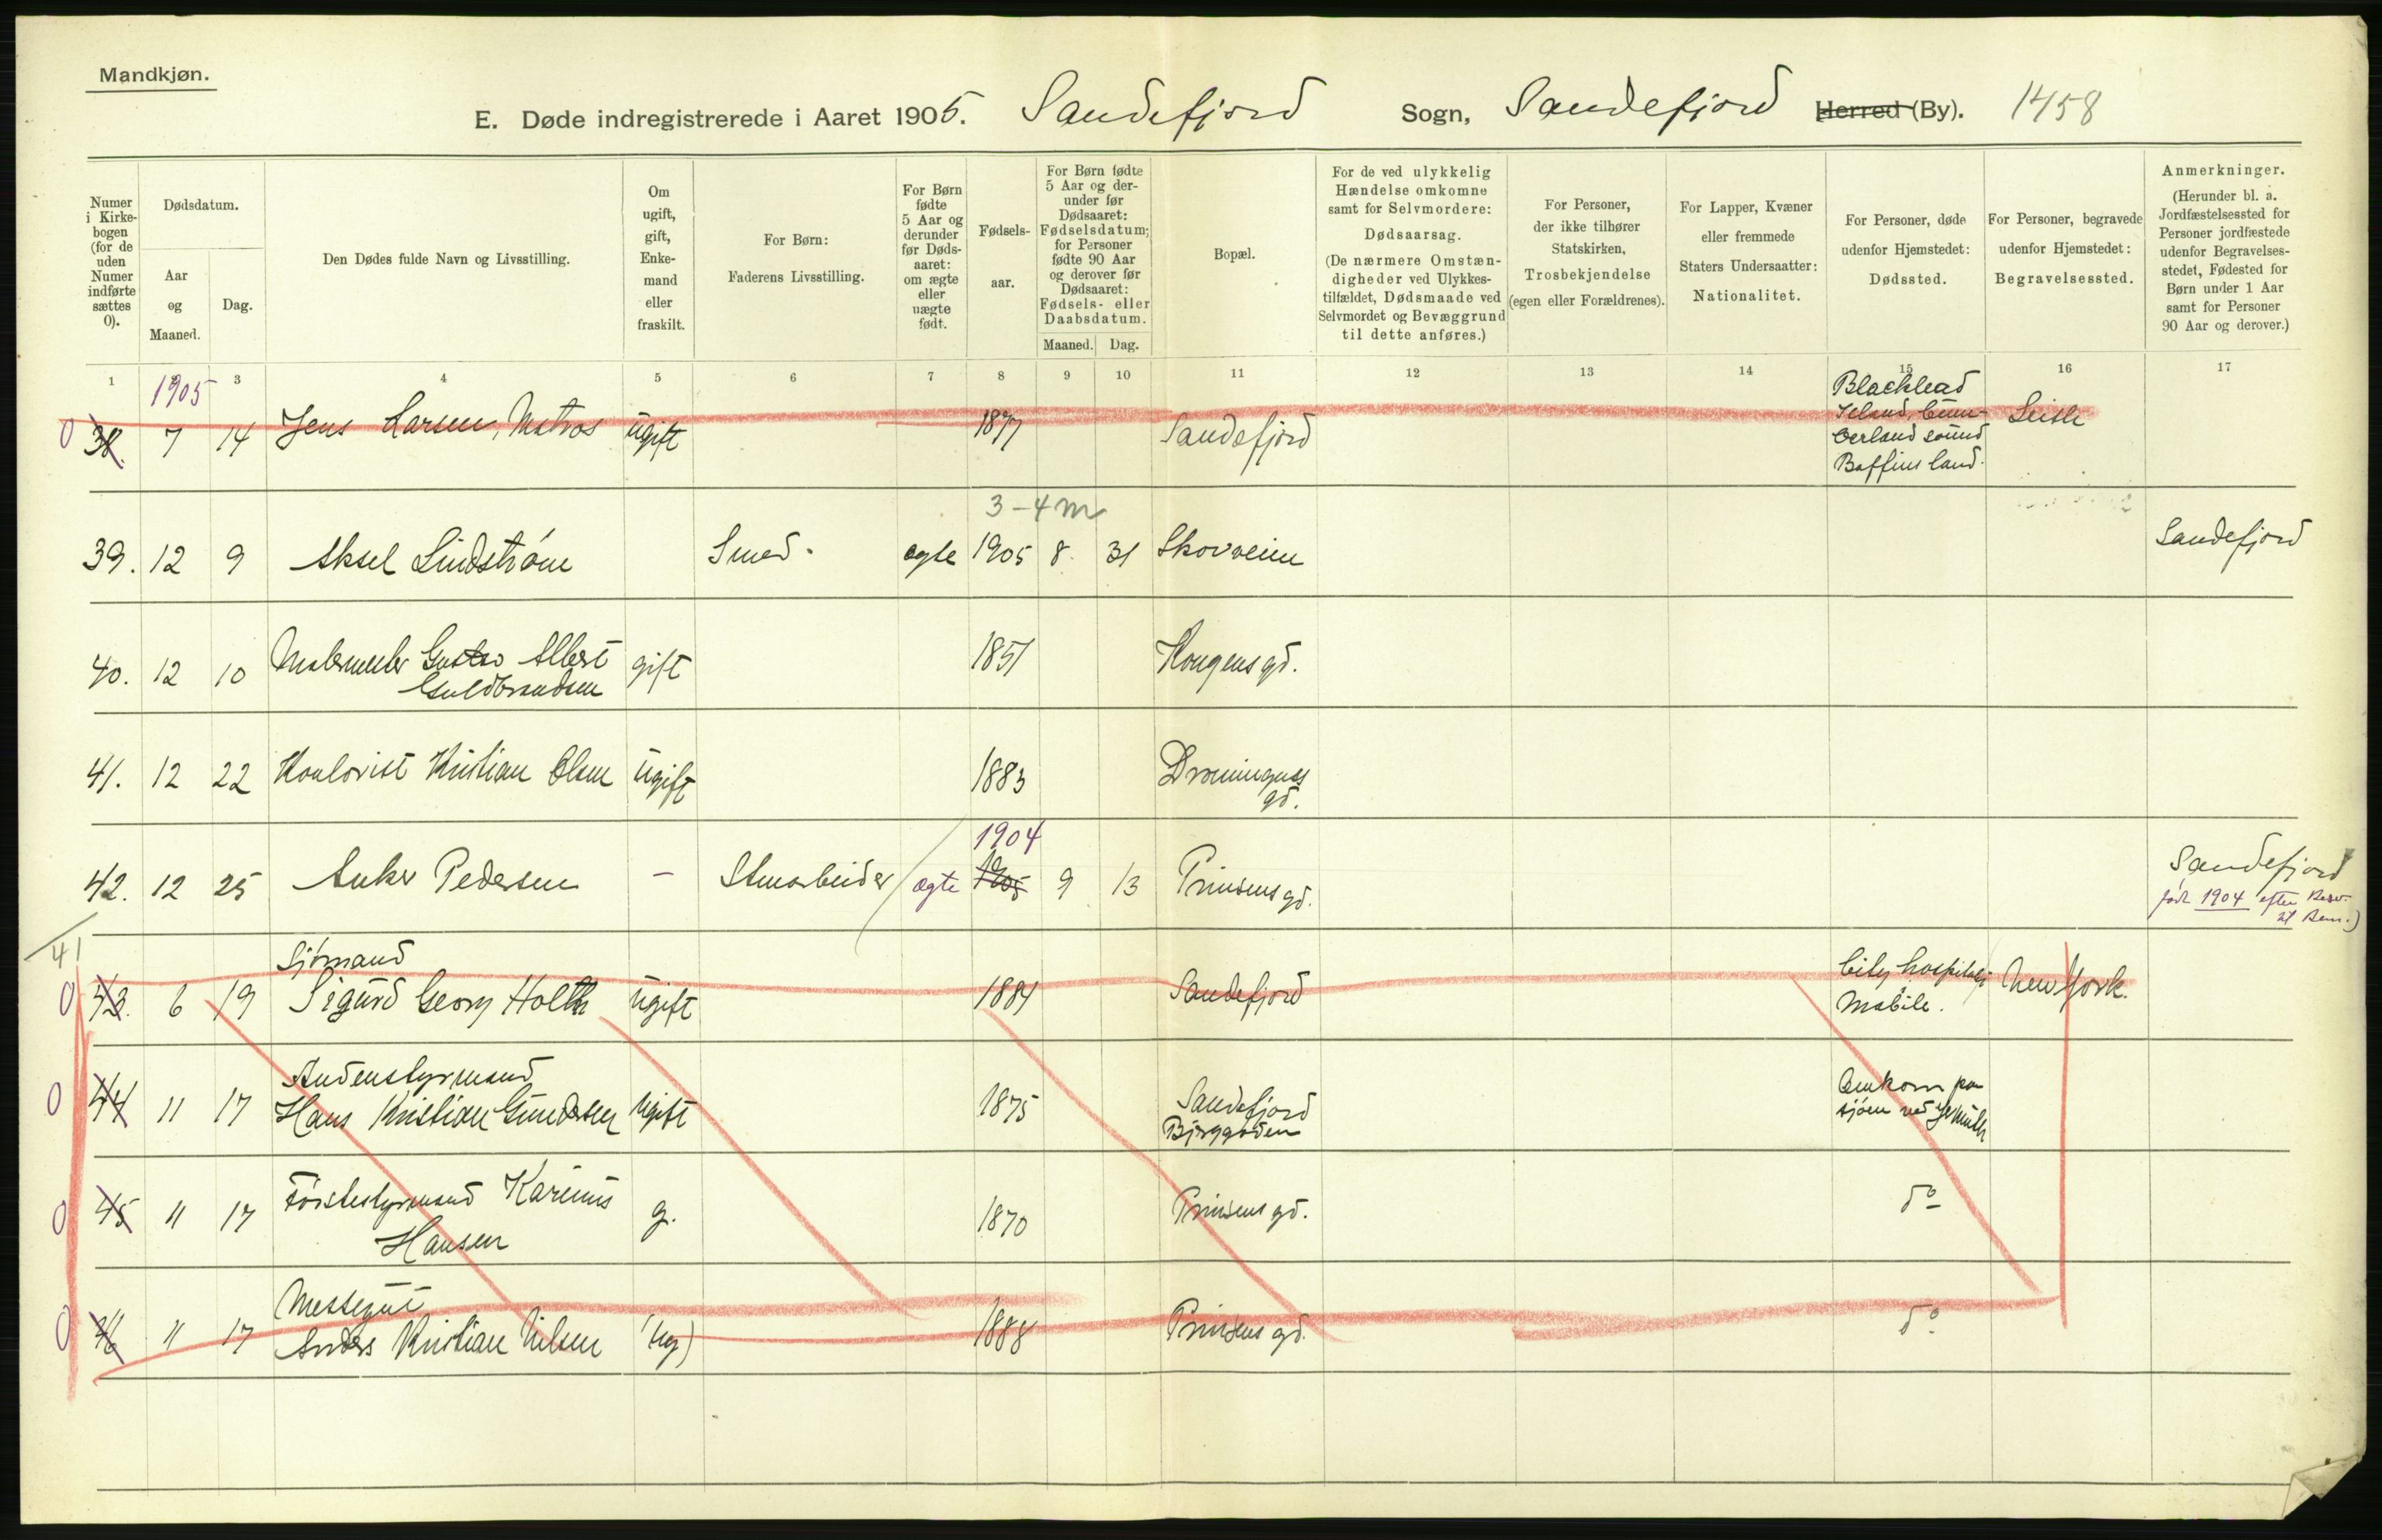 Mandkjøn.
E. Døde indregistrerede i Aaret 1905. Sandefjord Sogn, Sandefjord Herred (By). 1458
Numer i Kirkebogen (for de uden Numer indførte sættes 0).
Dødsdatum.
Aar og Maaned.
Dag.
Den Dødes fulde Navn og Livsstilling.
Om ugift, gift, Enkemand eller fraskilt.
For Børn: Faderens Livsstilling.
For Børn fødte 5 Aar og derunder før Dødsaaret: om ægte eller uægte født.
Fødselsaar.
For Børn fødte 5 Aar og derunder før Dødsaaret: Fødselsdatum; for Personer fødte 90 Aar og derover før Dødsaaret: Fødsels- eller Daabsdatum.
Maaned. Dag.
Bopæl.
For de ved ulykkelig Hændelse omkomne samt for Selvmordere: Dødsaarsag. (De nærmere Omstændigheder ved Ulykkestilfældet, Dødsmaade ved Selvmordet og Bevæggrund til dette anføres.)
For Personer, der ikke tilhører Statskirken, Trosbekjendelse (egen eller Forældrenes).
For Lapper, Kvæner eller fremmede Staters Undersaatter: Nationalitet.
For Personer, døde udenfor Hjemstedet: Dødssted.
For Personer, begravede udenfor Hjemstedet: Begravelsessted.
Anmerkninger. (Herunder bl. a. Jordfæstelsessted for Personer jordfæstede udenfor Begravelsesstedet, Fødested for Børn under 1 Aar samt for Personer 90 Aar og derover.)
1 3 4 5 6 7 8 9 10 11 12 13 14 15 16 17
1905
0 38. 7 14 Jens Larsen, Matros ugift 1877 Sandefjord Blacklead Island, Cumberland sound Baffins land. Leith
3-4 m
39. 12 9 Aksel Lindstrøm Smed. ægte 1905 8. 31 Skovveien Sandefjord
40. 12 10 Malermester Gustav Albert Guldbrandsen gift 1851 Kongensgd.
41. 12 22 Kontorist Kristian Olsen ugift 1883 Dronningens gd.
1904
42. 12 25 Anker Pedersen - Stenarbeider ægte 1905 9 13 Prinsensgd. Sandefjord
født 1904 efter
41
0 43. 6 19 Sjømand Sigurd Georg Holth ugift 1884 Sandefjord City hospital Mobile. New York.
0 44 11 17 Andenstyrmand Hans Kristian Gundersen ugift 1875 Sandefjord Bjerggaden Omkom paa sjøen ved
0 45 11 17 Førstestyrmand Karinius Hansen g. 1870 Prinsensgd. do
0 46 11 17 Messegut Anders Kristian Nilsen (ug) 1888 Prinsensgd. do